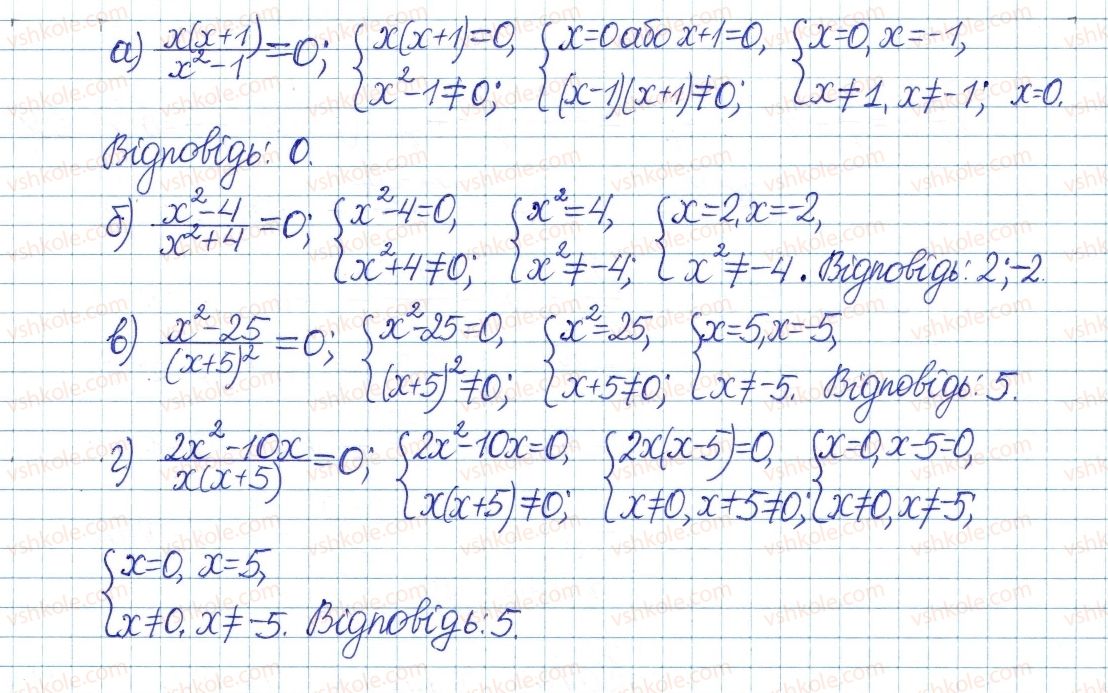 а) x(x+1)/x²-1 = 0; { x(x+1)=0, x²-1≠0; { x=0 або x+1=0, (x-1)(x+1)≠0; { x=0, x=-1, x≠1, x≠-1; x=0.
Відповідь: 0.
б) x²-4/x²+4 = 0; { x²-4=0, x²+4≠0; { x²=4, x²≠-4; { x=2, x=-2, x²≠-4. Відповідь: 2; -2.
в) x²-25/(x+5)² = 0; { x²-25=0, (x+5)²≠0; { x²=25, x+5≠0; { x=5, x=-5, x≠-5. Відповідь: 5.
г) 2x²-10x/x(x+5) = 0; { 2x²-10x=0, x(x+5)≠0; { 2x(x-5)=0, x≠0, x+5≠0; { x=0, x-5=0, x≠0, x≠-5;
{ x=0, x=5, x≠0, x≠-5. Відповідь: 5.
vshkole.com